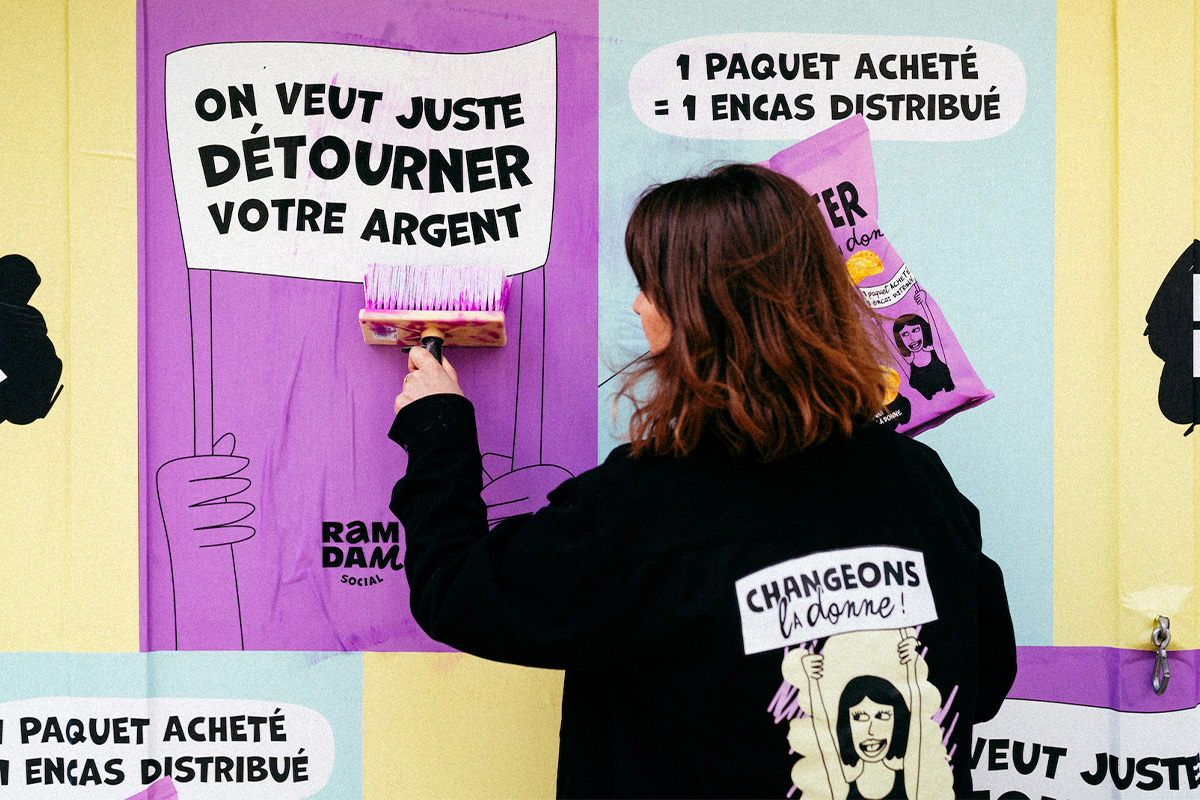 ON VEUT JUSTE
DÉTOURNER
VOTRE ARGENT
RAM
DAM
SOCIAL
1 PAQUET ACHETÉ
= 1 ENCAS DISTRIBUÉ
TER
don
1 paquet ACHETÉ
CHANGEONS
LA donne !
PAQUET ACHETÉ
1 ENCAS DISTRIBUÉ
VEUT JUSTE